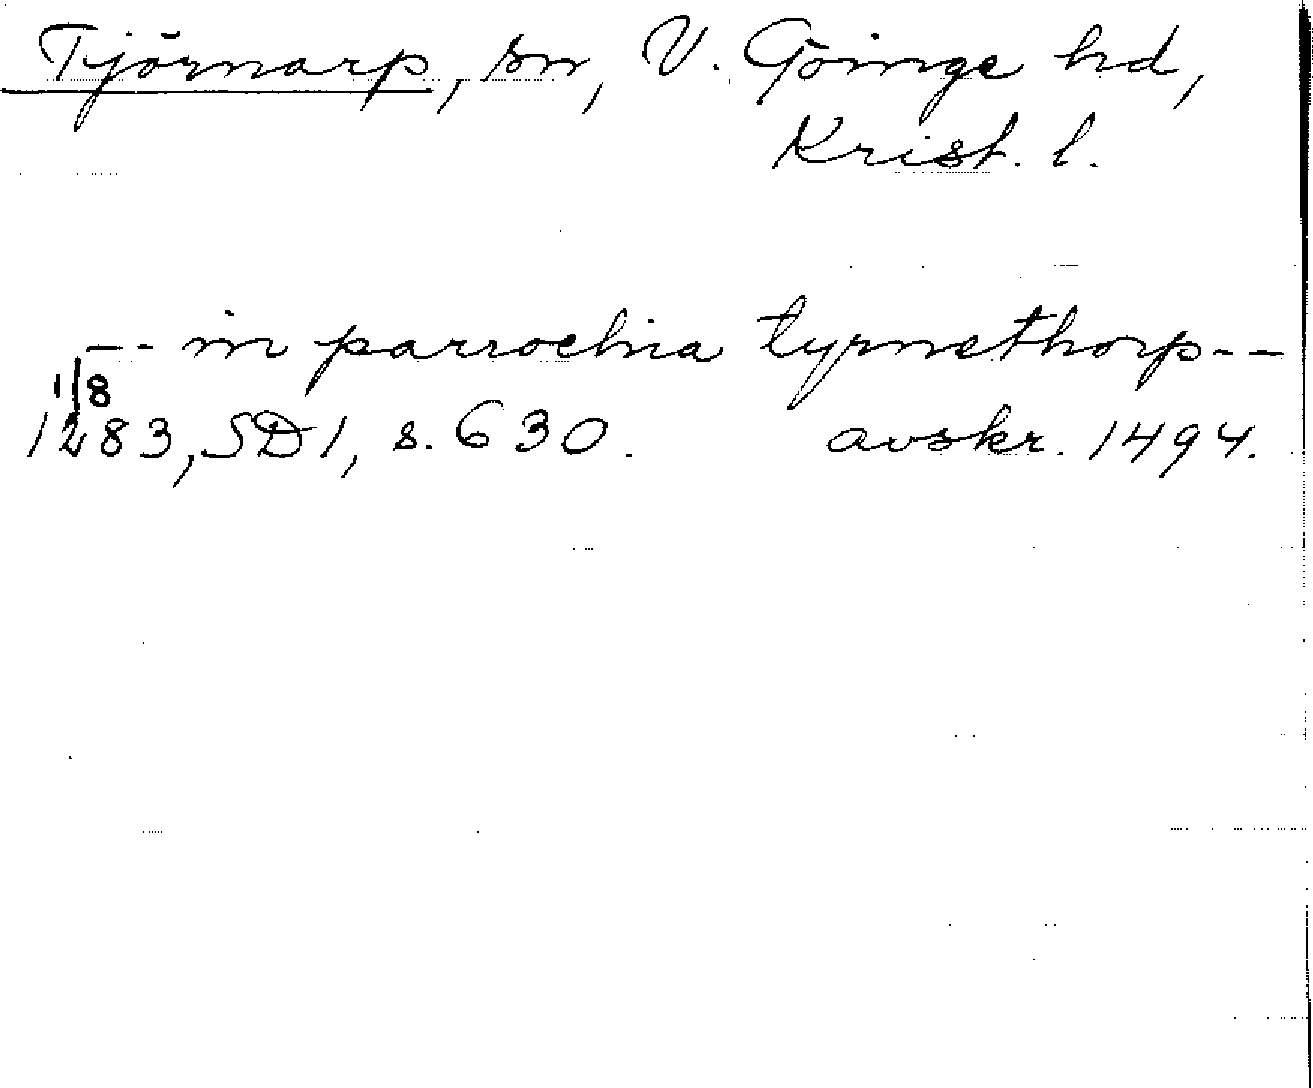 Tjörnarp, sn, V. Göinge hd,
Krist. l.
-- in parrochia tyrnethorp--
1/8
1283, SD 1, s. 630. avskr. 1494.